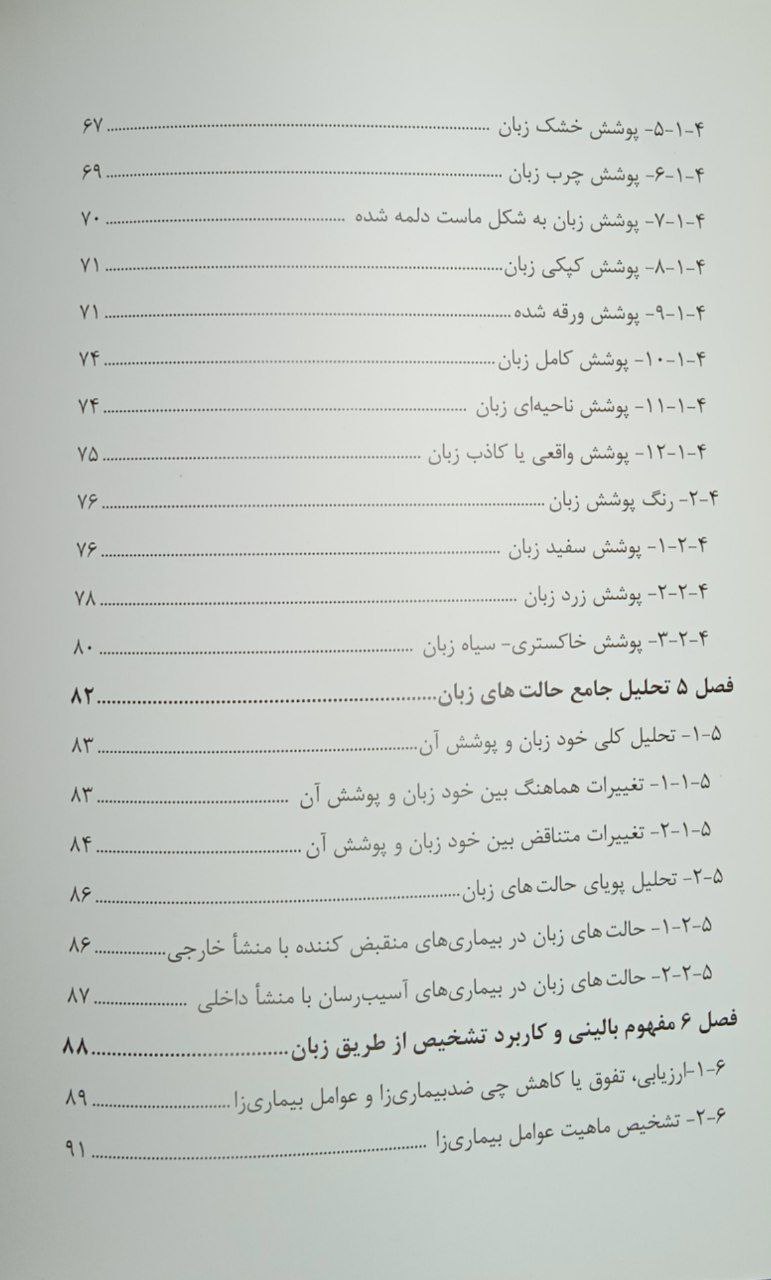 ۴-۱-۵- پوشش خشک زبان ........ ۶۷
۴-۱-۶- پوشش چرب زبان ........ ۶۹
۴-۱-۷- پوشش زبان به شکل ماست دلمه شده ........ ۷۰
۴-۱-۸- پوشش کپکی زبان ........ ۷۱
۴-۱-۹- پوشش ورقه شده ........ ۷۱
۴-۱-۱۰- پوشش کامل زبان ........ ۷۴
۴-۱-۱۱- پوشش ناحیه‌ای زبان ........ ۷۴
۴-۱-۱۲- پوشش واقعی یا کاذب زبان ........ ۷۵
۴-۲- رنگ پوشش زبان ........ ۷۶
۴-۲-۱- پوشش سفید زبان ........ ۷۶
۴-۲-۲- پوشش زرد زبان ........ ۷۸
۴-۲-۳- پوشش خاکستری- سیاه زبان ........ ۸۰
فصل ۵ تحلیل جامع حالت‌های زبان ........ ۸۲
۵-۱- تحلیل کلی خود زبان و پوشش آن ........ ۸۳
۵-۱-۱- تغییرات هماهنگ بین خود زبان و پوشش آن ........ ۸۳
۵-۱-۲- تغییرات متناقض بین خود زبان و پوشش آن ........ ۸۴
۵-۲- تحلیل پویای حالت‌های زبان ........ ۸۶
۵-۲-۱- حالت‌های زبان در بیماری‌های منقبض کننده با منشأ خارجی ........ ۸۶
۵-۲-۲- حالت‌های زبان در بیماری‌های آسیب‌رسان با منشأ داخلی ........ ۸۷
فصل ۶ مفهوم بالینی و کاربرد تشخیص از طریق زبان ........ ۸۸
۶-۱-ارزیابی، تفوق یا کاهش چی ضدبیماری‌زا و عوامل بیماری‌زا ........ ۸۹
۶-۲- تشخیص ماهیت عوامل بیماری‌زا ........ ۹۱